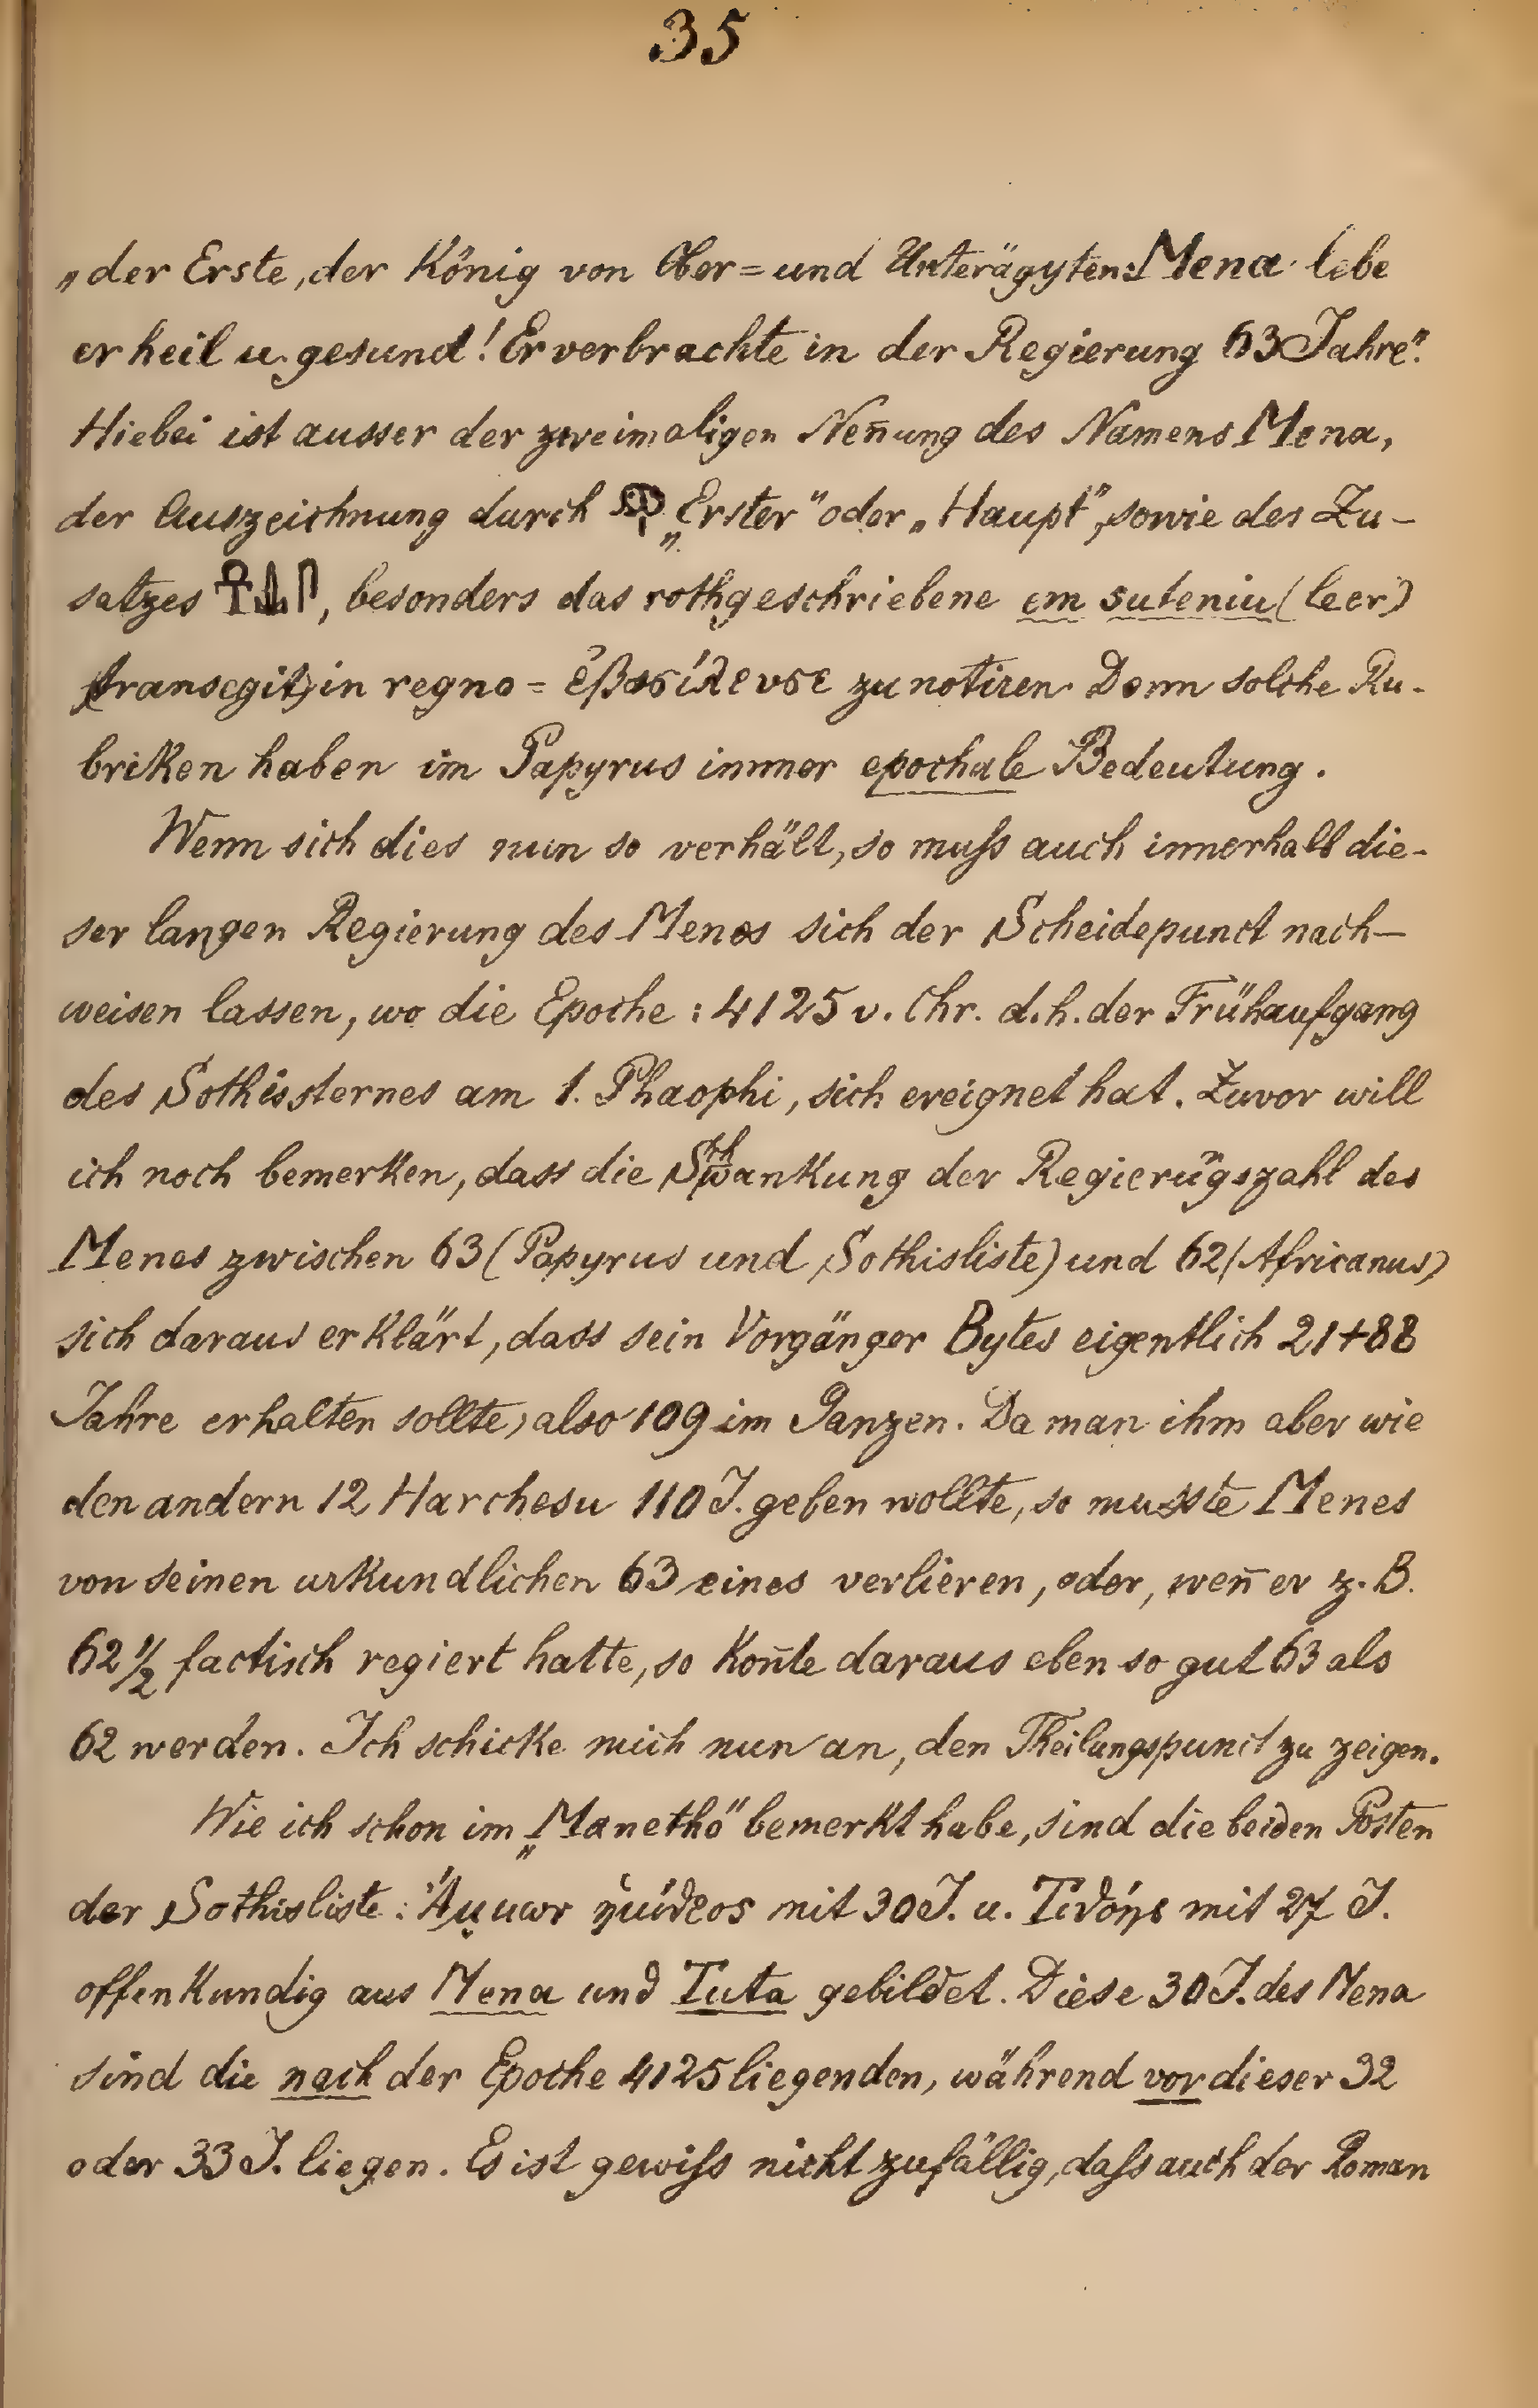 35
„der Erste, der König von Ober= und Unterägyten: Mena lebe
er heil u. gesund! Er verbrachte in der Regierung 63 Jahre".
Hiebei ist ausser der zweimaligen Nen̄ung des Namens Mena,
der Auszeichnung durch „Erster" oder „Haupt", sowie des Zu-
satzes 𓋹𓍑𓋴, besonders das rothgeschriebene em suteniu (leer)
transegit) in regno = ἐβασίλευσε zu notiren. Denn solche Ru-
briken haben im Papyrus immer epochale Bedeutung.
Wenn sich dies nun so verhält, so muſs auch innerhalb die-
ser langen Regierung des Menes sich der Scheidepunct nach-
weisen lassen, wo die Epoche: 4125 v. Chr. d.h. der Frühaufgang
des Sothissternes am 1. Phaophi, sich ereignet hat. Zuvor will
ich noch bemerken, dass die Schwankung der Regierun̄gszahl des
Menes zwischen 63 (Papyrus und Sothisliste) und 62 (Africanus)
sich daraus erklärt, dass sein Vorgänger Bytes eigentlich 21+88
Jahre erhalten sollte, also 109 im Ganzen. Da man ihm aber wie
den andern 12 Harchesu 110 J. geben wollte, so musste Menes
von seinen urkundlichen 63 eines verlieren, oder, wen̄ er z. B.
62 1/2 factisch regiert hatte, so kon̄te daraus eben so gut 63 als
62 werden. Ich schicke mich nun an, den Theilungspunct zu zeigen.
Wie ich schon im „Manetho" bemerkt habe, sind die beiden Posten
der Sothisliste: Ἄμμων ἡμίθεος mit 30 J. u. Τιθόης mit 27 J.
offenkundig aus Mena und Tuta gebildet. Diese 30 J. des Mena
sind die nach der Epoche 4125 liegenden, während vor dieser 32
oder 33 J. liegen. Es ist gewiſs nicht zufällig, daſs auch der Roman